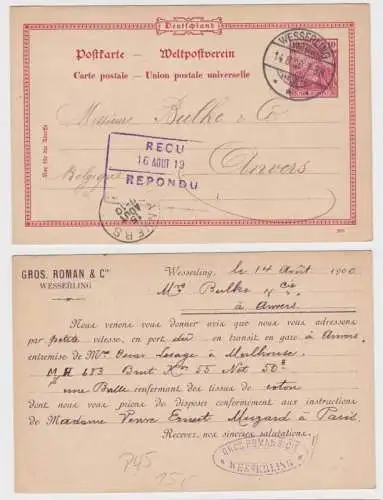 Deutschland
Postkarte — Weltpostverein
Carte postale — Union postale universelle
WESSERLING
Messieurs Bulke & Co
Anvers
Belgique
Nur für die Adresse
REÇU
16 AOUT 19
REPONDU
ANVERS
GROS, ROMAN & Cie
WESSERLING
Wesserling, le 14 Août 1900
Mrs Bulke & cie
à Anvers
Nous venons vous donner avis que nous vous adressons
par petite vitesse, en port dû en transit en gare à Anvers
entremise de Mr Cesar Lesage à Mulhouse
M H 683 Brut Kos 55 Net 50
une Balle renfermant des tissus de coton
dont nous vous prions de disposer conformément aux instructions
de Madame Veuve Ernest à Paris
Recevez, nos sincères salutations.
GROS ROMAN & Cie
WESSERLING
P45
15,-